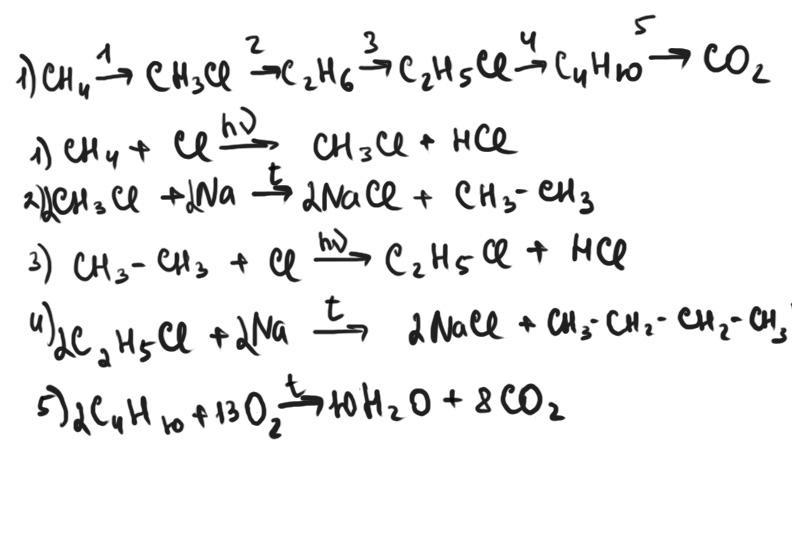 1) CH4 1→ CH3Cl 2→ C2H6 3→ C2H5Cl 4→ C4H10 5→ CO2
1) CH4 + Cl hν→ CH3Cl + HCl
2) 2CH3Cl + 2Na t→ 2NaCl + CH3-CH3
3) CH3-CH3 + Cl hν→ C2H5Cl + HCl
4) 2C2H5Cl + 2Na t→ 2NaCl + CH3-CH2-CH2-CH3
5) 2C4H10 + 13O2 t→ 10H2O + 8CO2